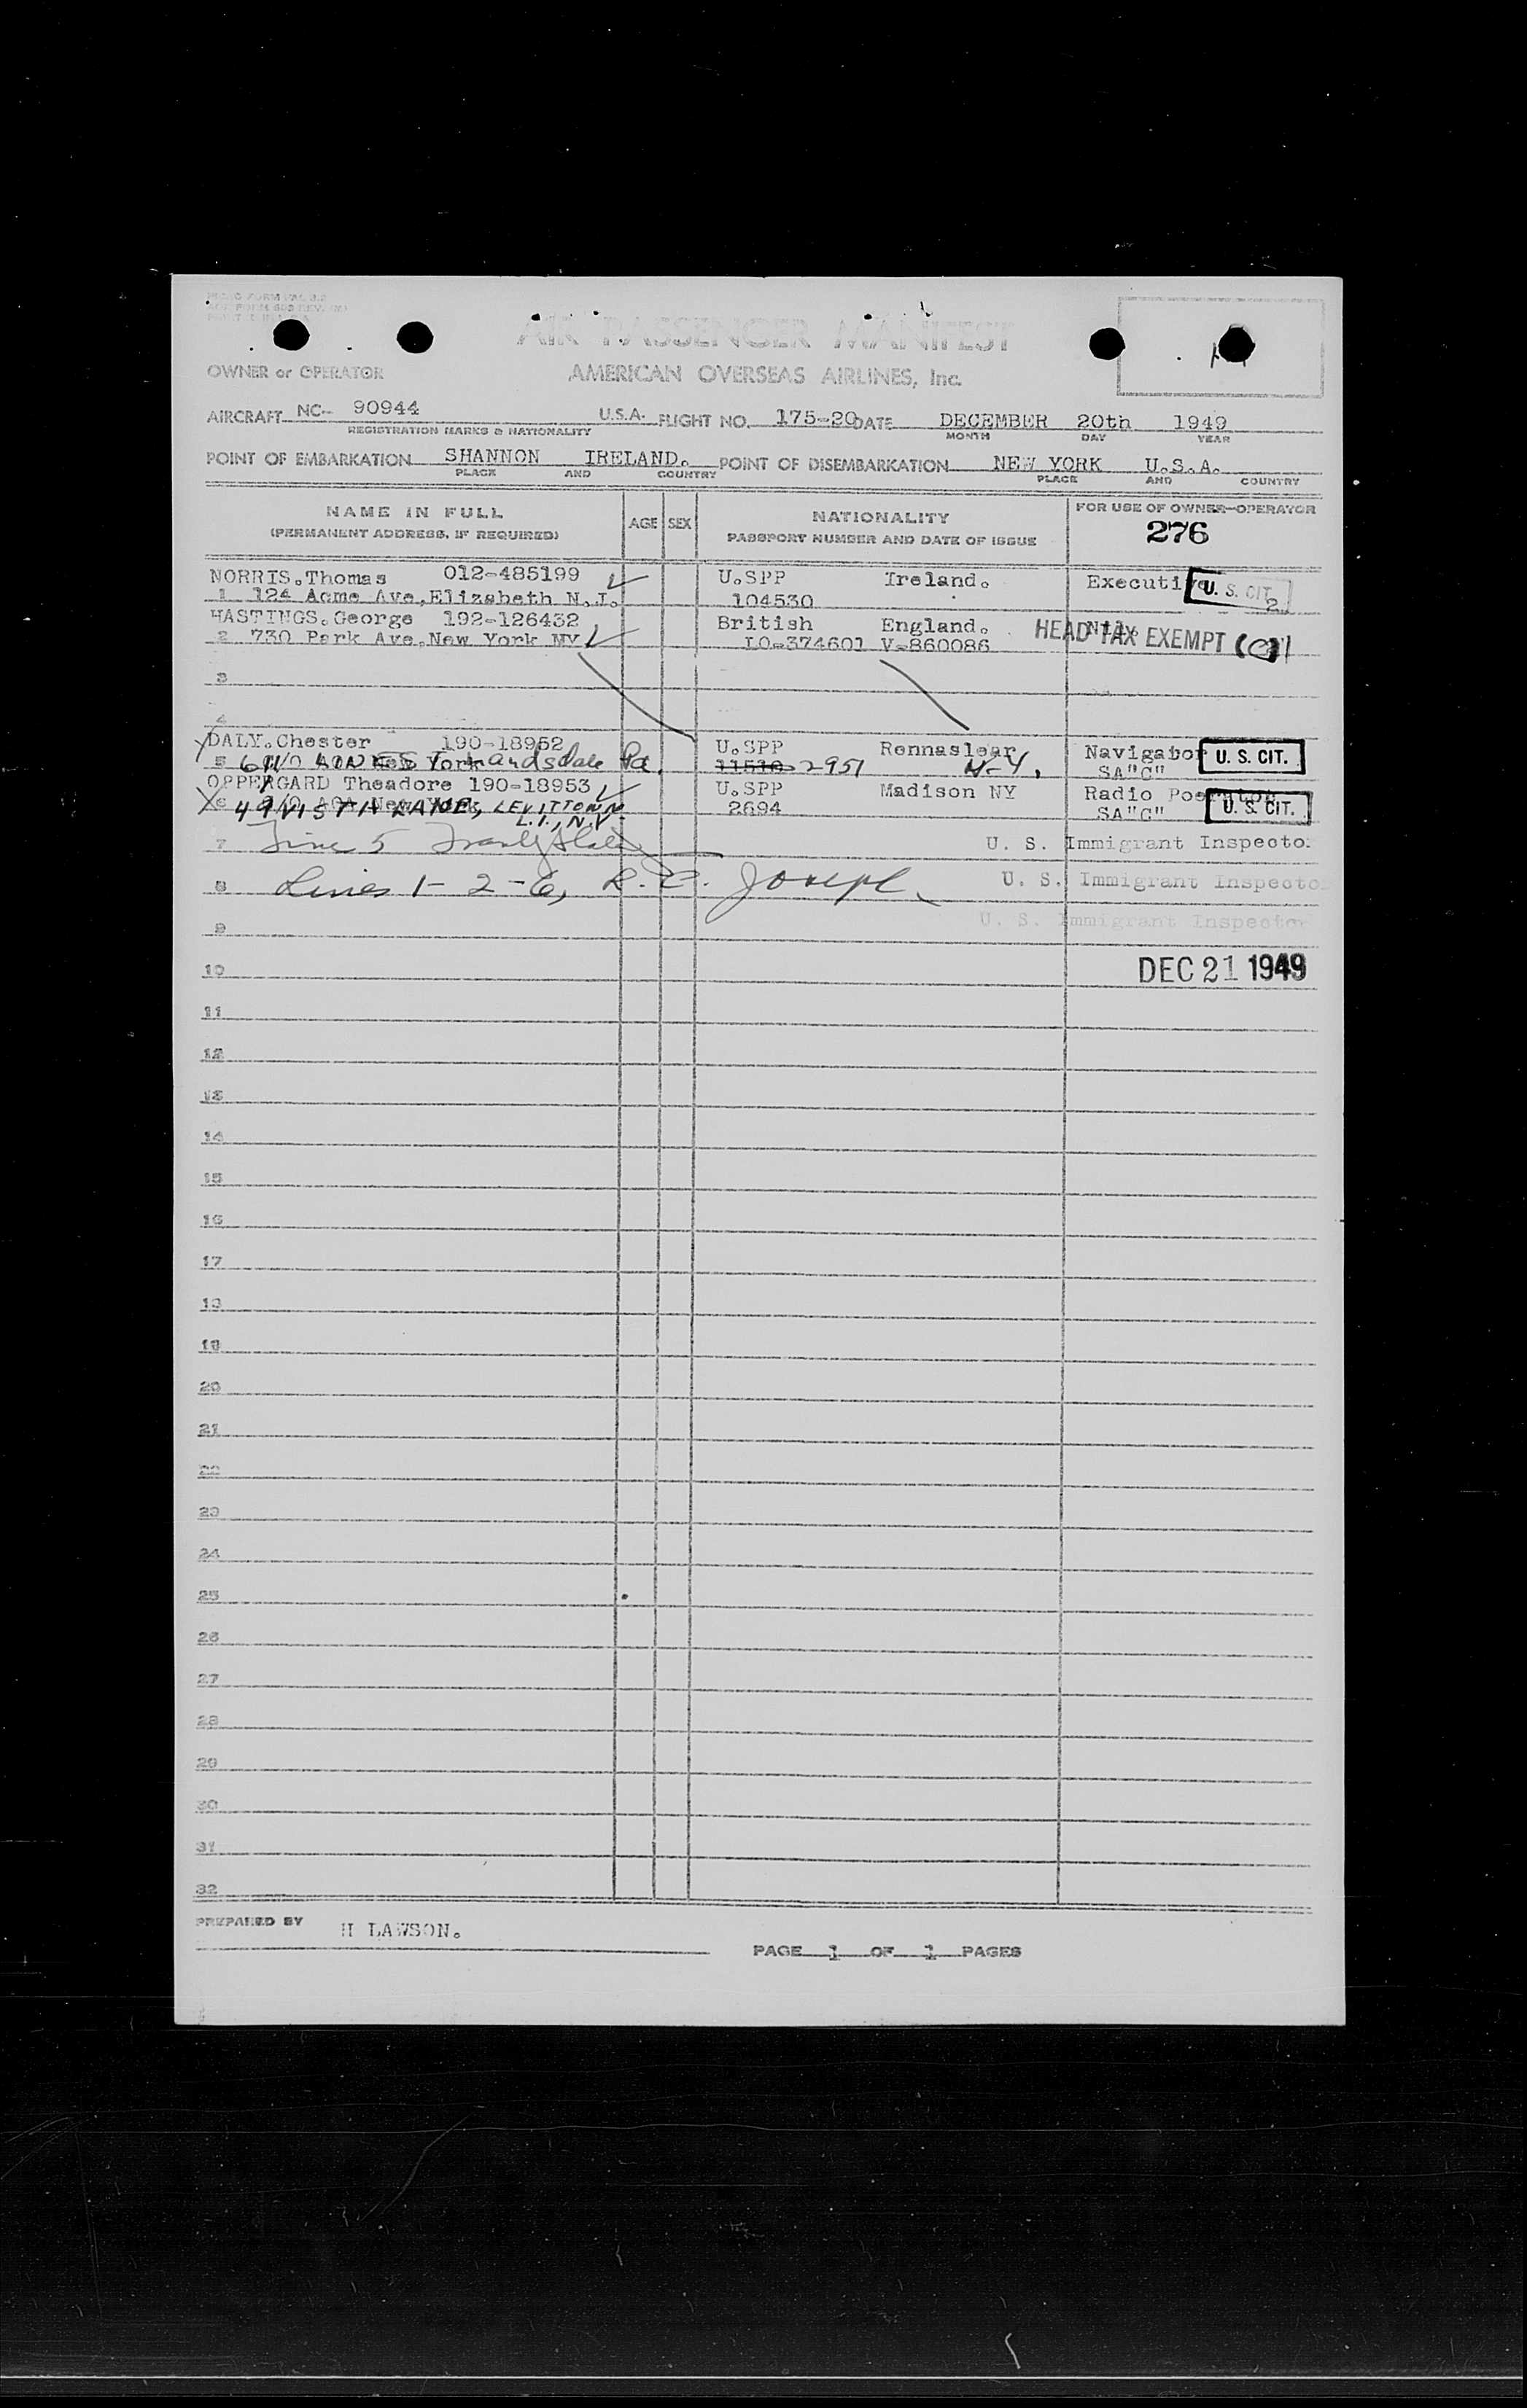 AIR PASSENGER MANIFEST
OWNER or OPERATOR AMERICAN OVERSEAS AIRLINES, Inc.
AIRCRAFT NC- 90944 U.S.A. FLIGHT NO. 175-20 DATE DECEMBER 20th 1949
REGISTRATION MARKS & NATIONALITY MONTH DAY YEAR
POINT OF EMBARKATION SHANNON IRELAND. POINT OF DISEMBARKATION NEW YORK U.S.A.
PLACE AND COUNTRY PLACE AND COUNTRY
NAME IN FULL AGE SEX NATIONALITY FOR USE OF OWNER-OPERATOR
(PERMANENT ADDRESS, IF REQUIRED) PASSPORT NUMBER AND DATE OF ISSUE 276
NORRIS.Thomas 012-485199 U.SPP Ireland. Executive U. S. CIT.
1 124 Acme Ave.Elizabeth N.J. 104530 2
HASTINGS.George 192-126432 British England.
2 730 Park Ave.New York NY LO-374601 V-860086 HEAD TAX EXEMPT
3
4
DALY.Chester 190-18952 U.SPP Rennaslear Navigator U. S. CIT.
5 Landsdale Pa. 11510 2951 N-Y. SA"C"
OPPERGARD Theadore 190-18953 U.SPP Madison NY Radio U. S. CIT.
6 49 VISTA LANE, LEVITTOWN 2694 SA"C"
L.I., N.Y.
7 Line 5 U. S. Immigrant Inspector
8 Lines 1-2-6, R. C. Joseph U. S. Immigrant Inspector
9 U. S. Immigrant Inspector
10 DEC 21 1949
11
12
13
14
15
16
17
18
19
20
21
22
23
24
25
26
27
28
29
30
31
32
PREPARED BY H LAWSON.
PAGE 1 OF 1 PAGES